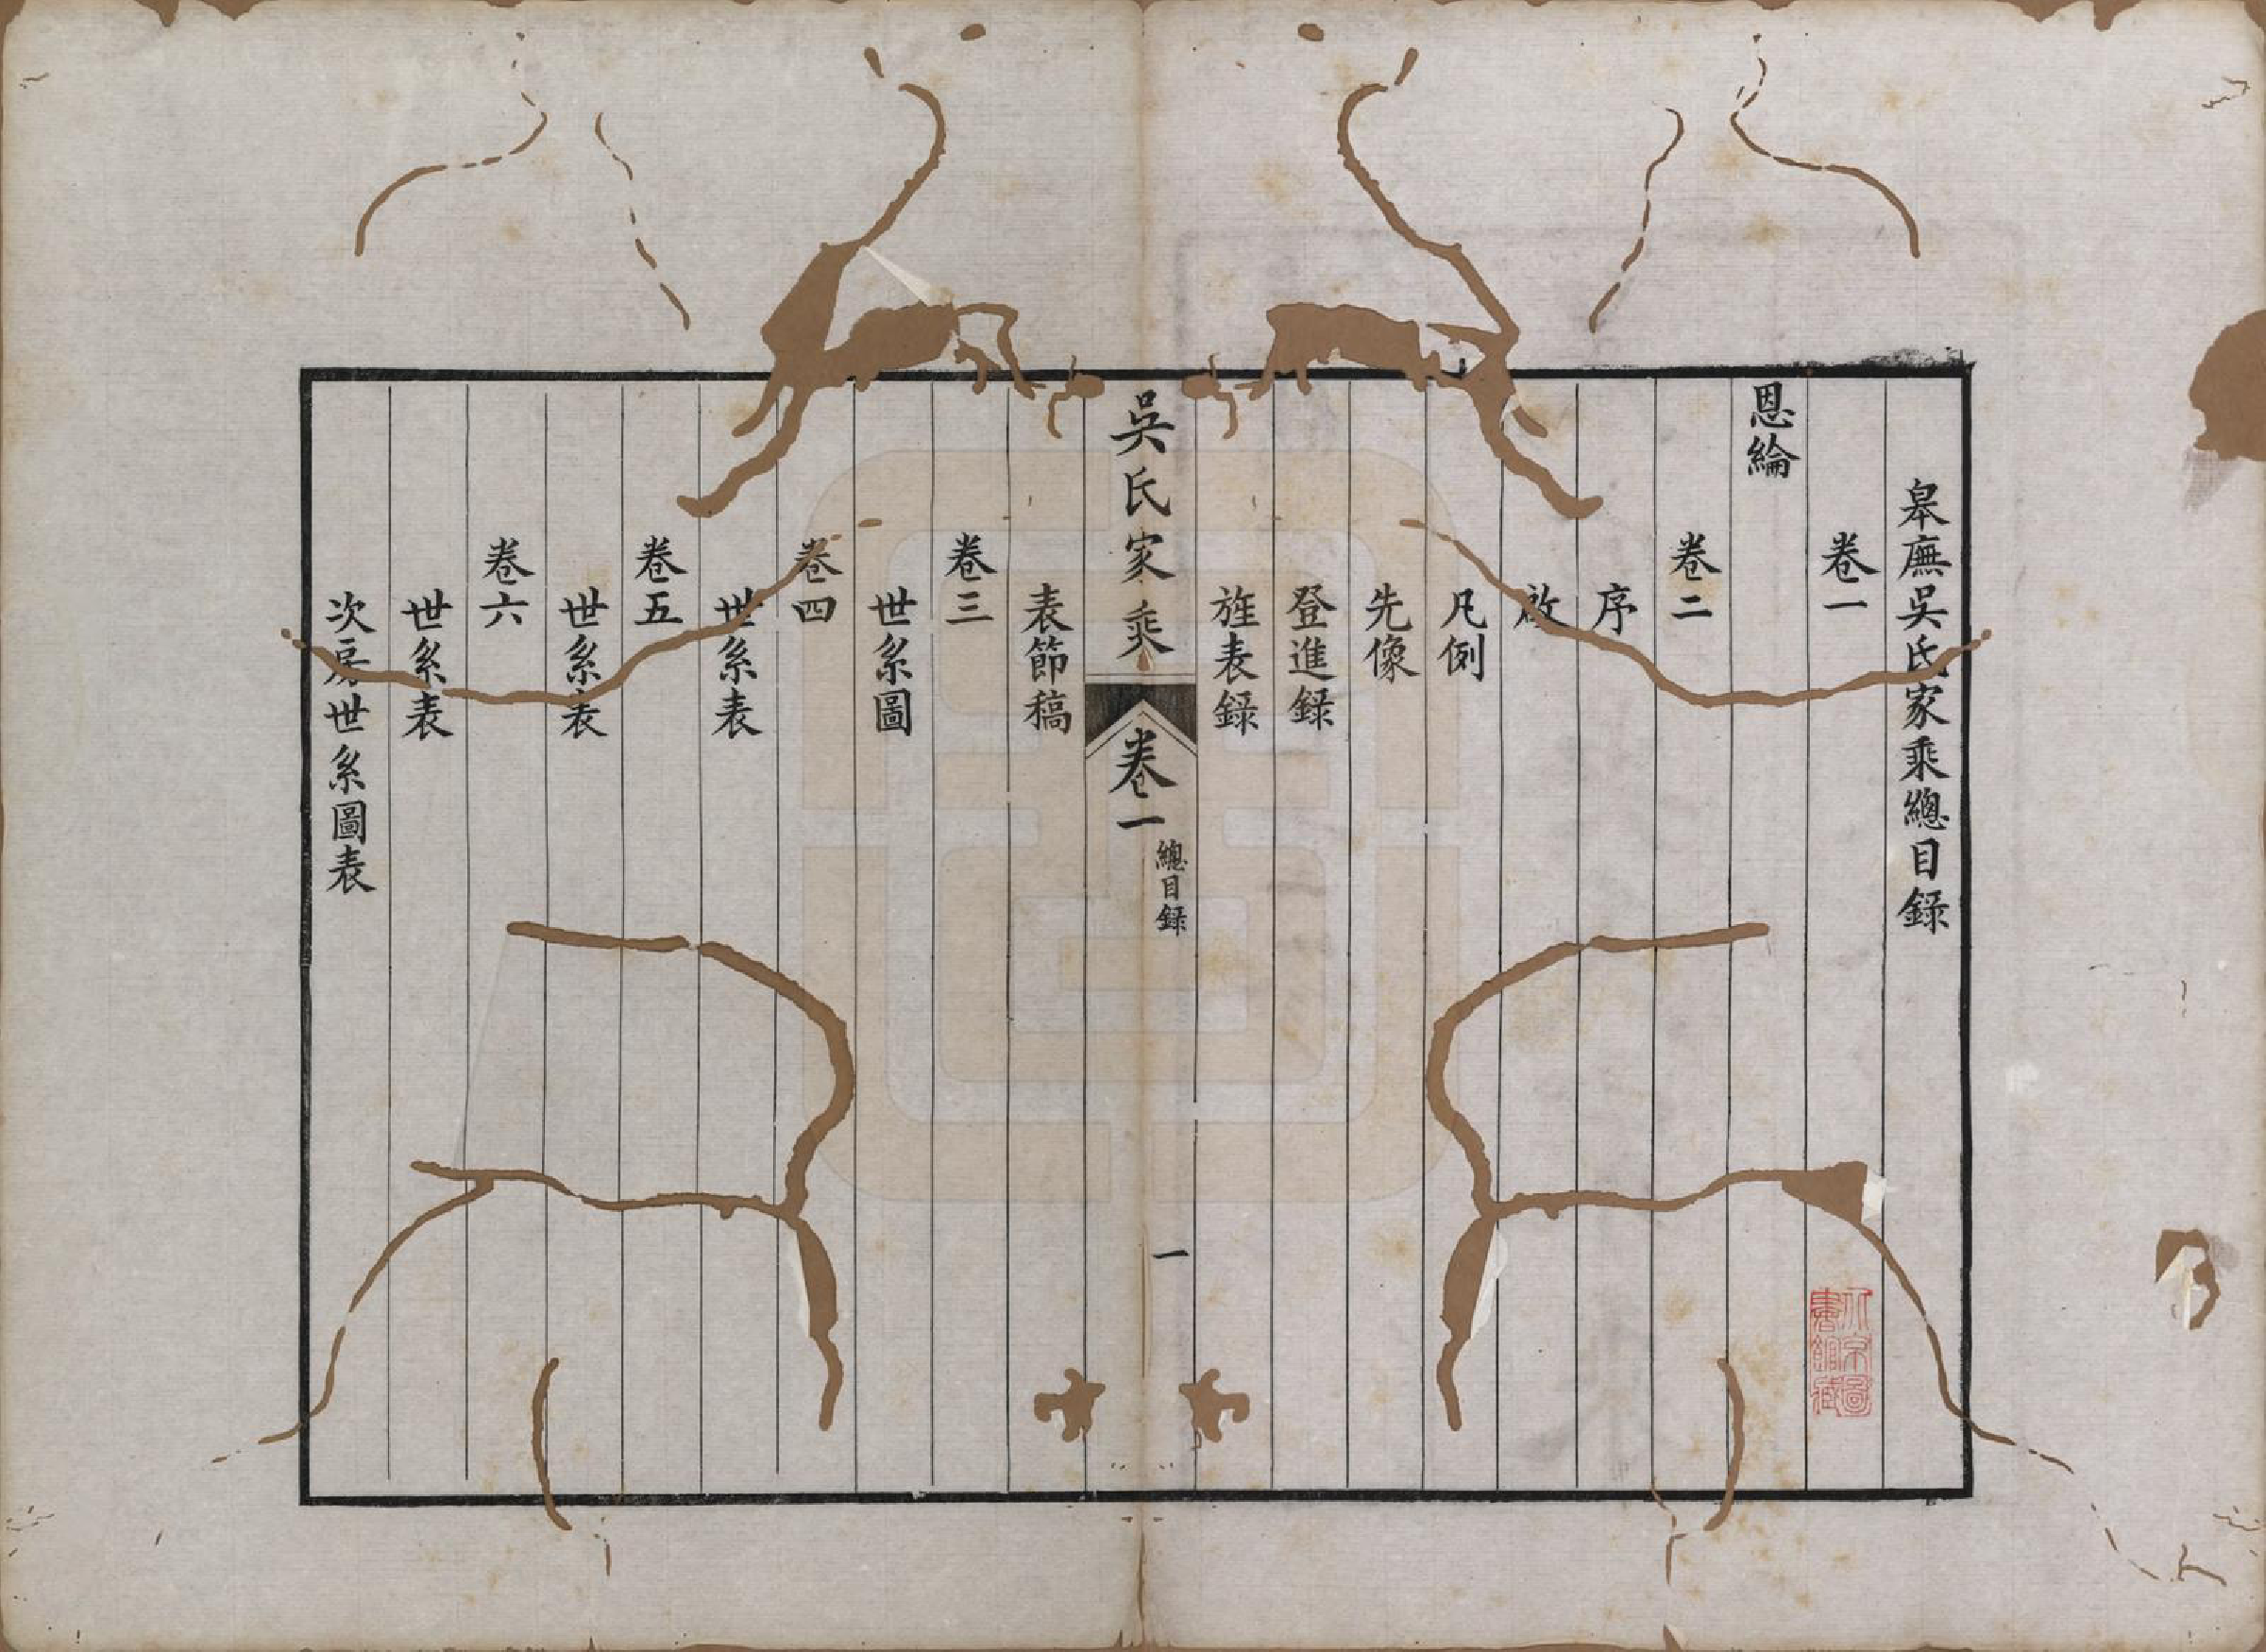 皋廡吳氏家乘總目録
卷一
恩綸
卷二
序
啟
凡例
先像
登進録
旌表録
吳氏家乘
卷一
總目録
一
表節稿
卷三
世系圖
卷四
世系表
卷五
世系表
卷六
世系表
次房世系圖表
北京圖
書館藏